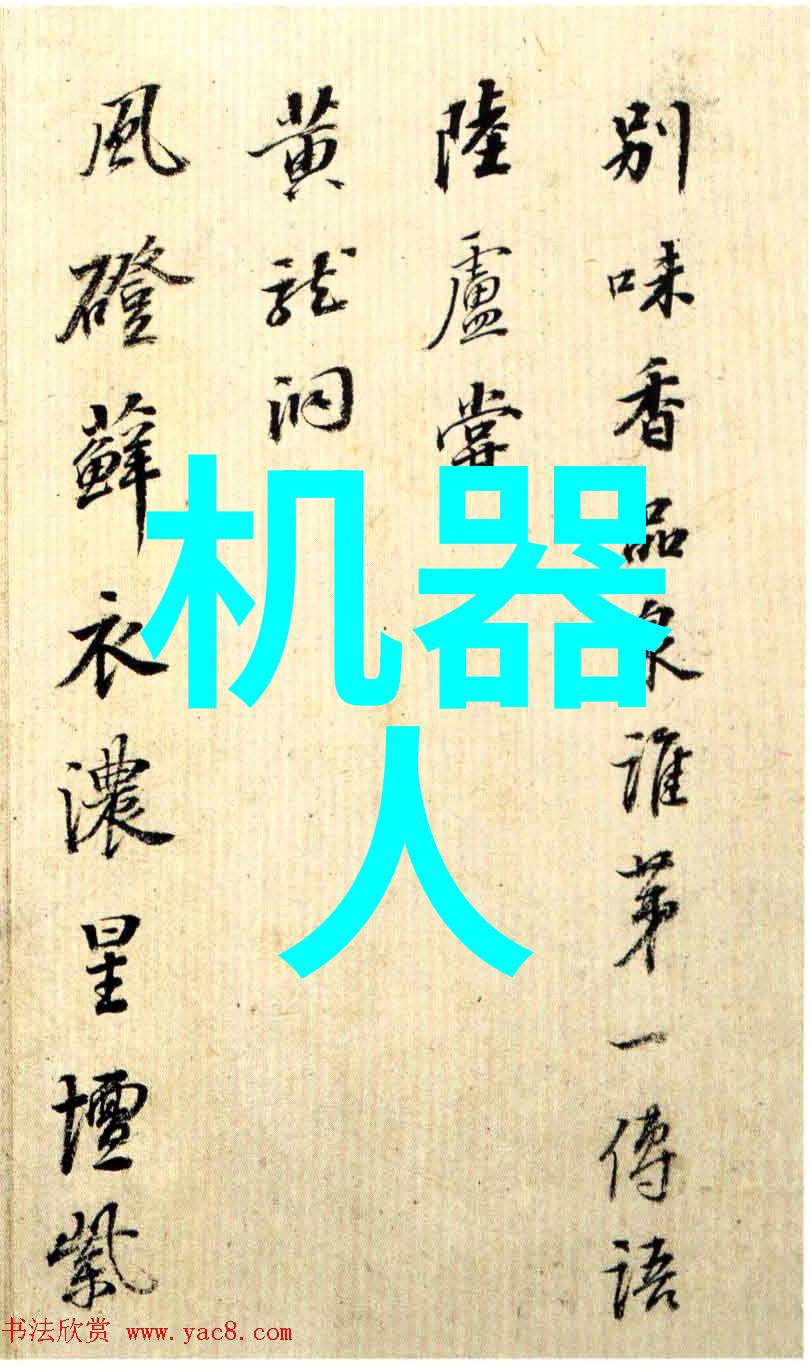 别味香品泉谁第一傳語
陸盧嘗
黄龍洞
風磴蘚衣濃星壇紫
机器
人
书法欣赏 www.yac8.com